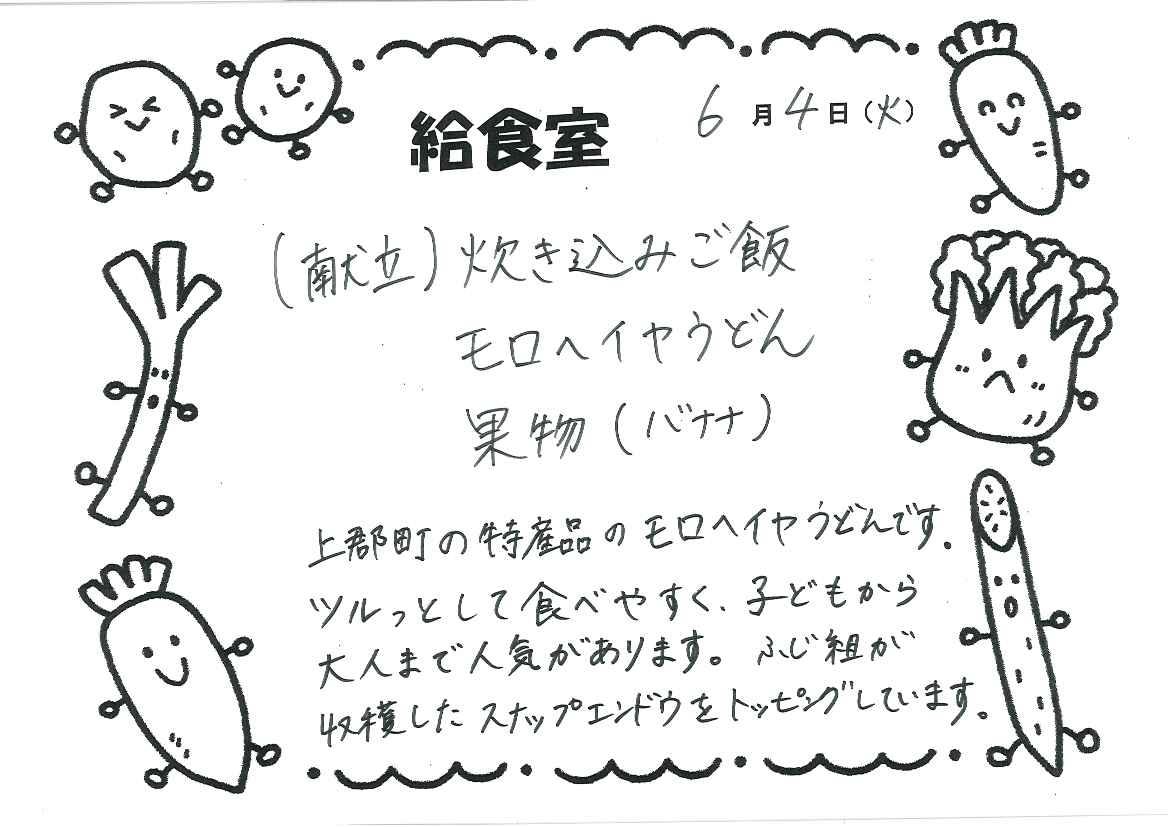 給食室
6月4日(火)
(献立)炊き込みご飯
モロヘイヤうどん
果物(バナナ)
上郡町の特産品のモロヘイヤうどんです。
ツルっとして食べやすく、子どもから
大人まで人気があります。ふじ組が
収穫したスナップエンドウをトッピングしています。